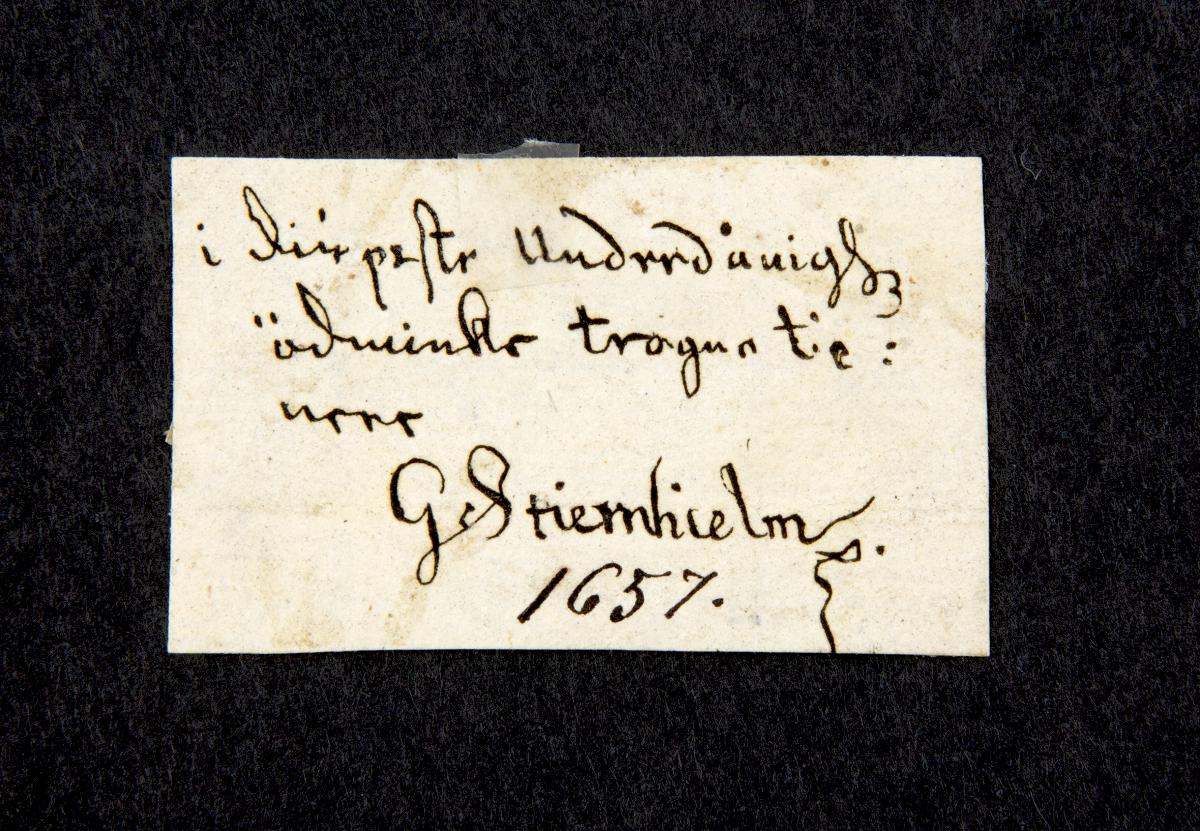 i diúpeste Underdånighꝫ
ödmiuke trogne tie:
nere
G Stiernhielm.
1657.